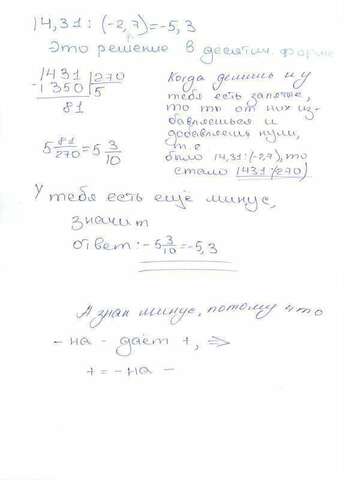 14,31 : (-2,7)=-5,3
Это решение в десятич. форме
1431 |270
1350 |5
81
5 81/270 = 5 3/10
Когда делишь и у
тебя есть запятые,
то ты от них из-
бавляешься и
добавляешь нули,
т. е
было 14,31:(-2,7), то
стало 1431/270)
У тебя есть ещё минус,
значит
ответ: -5 3/10 = -5,3
А знак минус, потому что
- на - даёт +, ⇒
+ = - на -